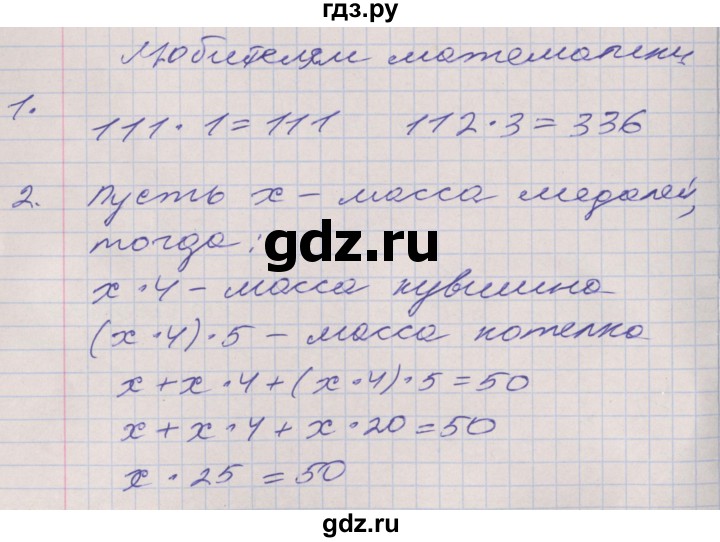 гдз.ру
Любителям математики
1.
111·1=111 112·3=336
2. Пусть x – масса медалей,
тогда:
gdz.ru
x·4 – масса кувшина
(x·4)·5 – масса котелка
x+x·4+(x·4)·5=50
x+x·4+x·20=50
x·25=50
gdz.ru